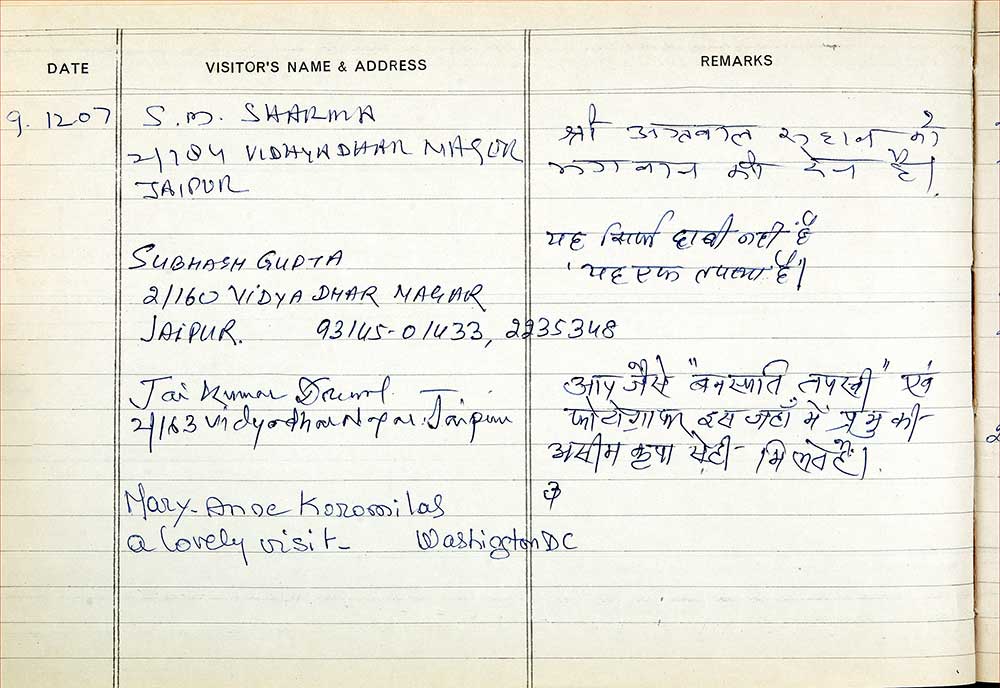 DATE
VISITOR'S NAME & ADDRESS
REMARKS
9.12.07
S.M. SHARMA
2/184 VIDHYADHAR NAGAR
JAIPUR
श्री अग्रवाल को
भगवान की देन है।
SUBHASH GUPTA
2/160 VIDYADHAR NAGAR
JAIPUR. 93145-01433, 2235348
यह सिर्फ हॉबी नहीं है
यह एक तपस्या है।
Jai Kumar
2/163 Vidyadhar Nagar. Jaipur
आप जैसे "वनस्पति तपस्वी" एवं
फोटोग्राफर इस जहाँ में प्रभु की
असीम कृपा से ही मिलते हैं।
Mary-Anne Koromilas
a lovely visit- Washington DC